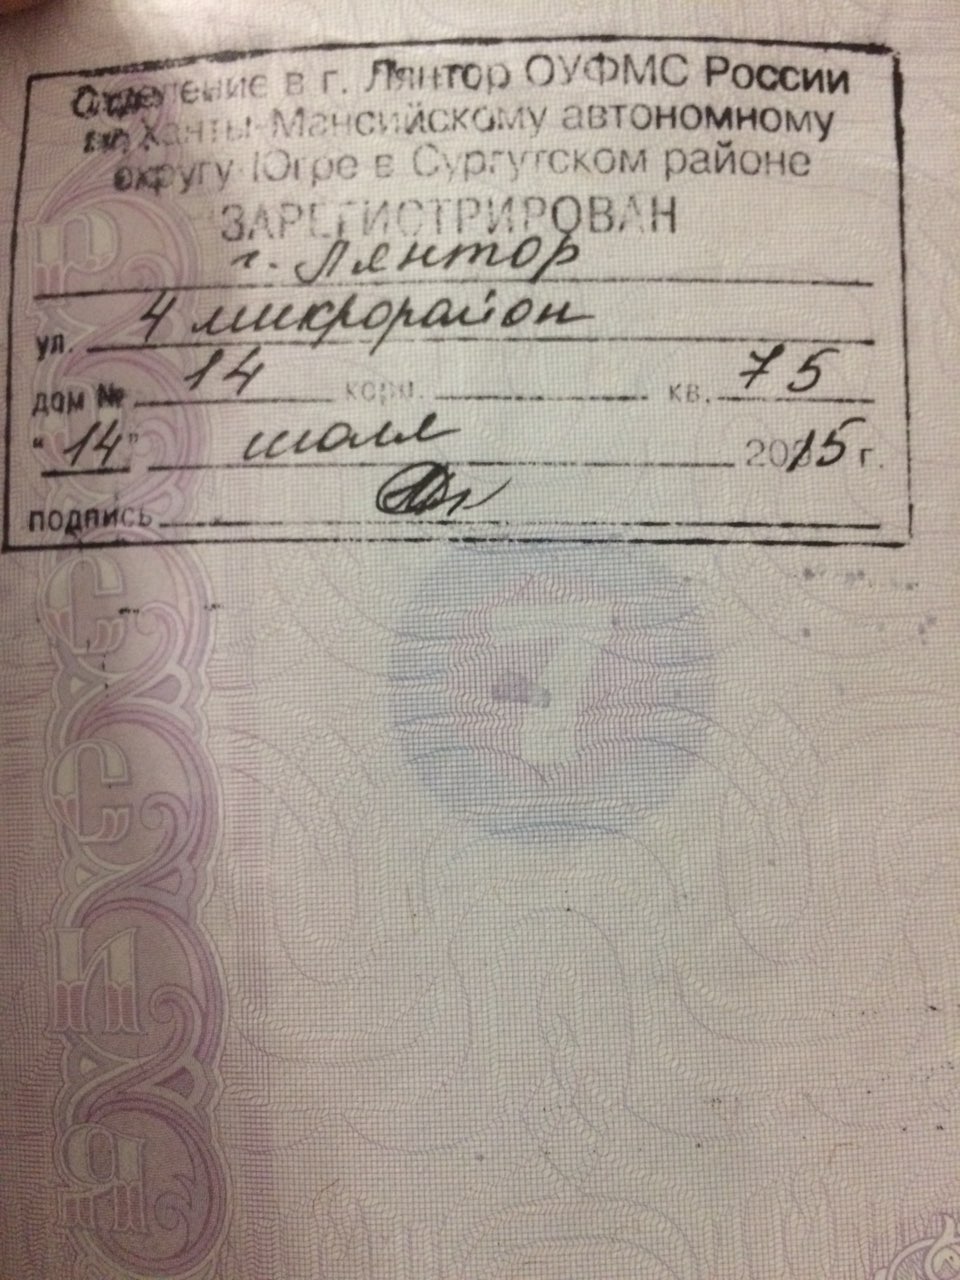 Отделение в г. Лянтор ОУФМС России
по Ханты-Мансийскому автономному
округу-Югре в Сургутском районе
ЗАРЕГИСТРИРОВАН
г. Лянтор
ул. 4 микрорайон
дом № 14 корп. кв. 75
"14" июля 2015 г.
подпись
РОССИЯ